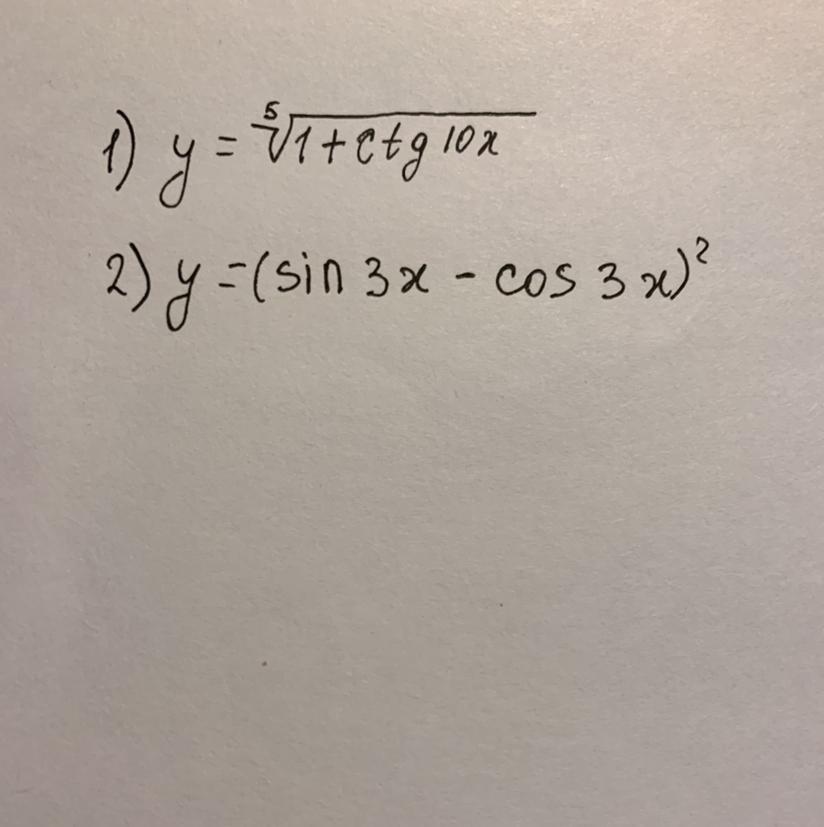 1) y = ⁵√(1+ctg 10x)
2) y = (sin 3x - cos 3x)²